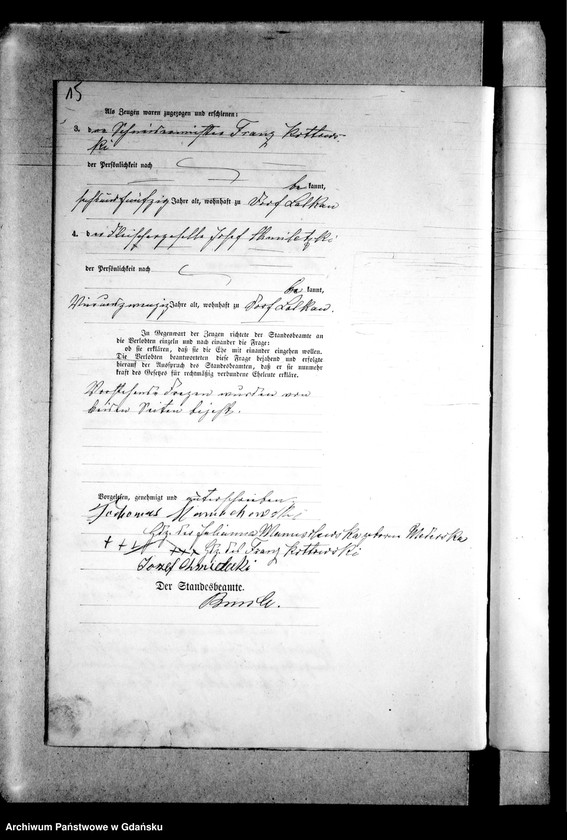 15
Als Zeugen waren zugezogen und erschienen:
3. der Schneidermeister Franz Kottows-
ki
der Persönlichkeit nach
be kannt,
sechsundfünfzig Jahre alt, wohnhaft zu Dorf Lalkau
4. der Fleischergeselle Josef
der Persönlichkeit nach
be kannt,
Vierundzwanzig Jahre alt, wohnhaft zu Dorf Lalkau.
In Gegenwart der Zeugen richtete der Standesbeamte an
die Verlobten einzeln und nach einander die Frage:
ob sie erklären, daß sie die Ehe mit einander eingehen wollen.
Die Verlobten beantworteten diese Frage bejahend und erfolgte
hierauf der Ausspruch des Standesbeamten, daß er sie nunmehr
kraft des Gesetzes für rechtmäßig verbundene Eheleute erkläre.
Vorstehende Fragen wurden von
beiden Seiten bejaht.
Vorgelesen, genehmigt und unterschrieben
Hdz. der Julianna geborne
+++ +++ Hdz. des Franz Kottowski
Jozef
Der Standesbeamte.
Archiwum Państwowe w Gdańsku